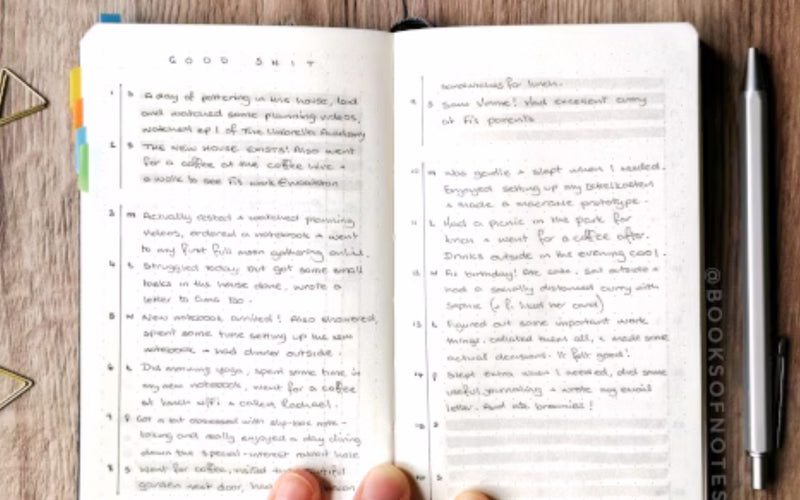 GOOD SHIT
1 S A day of pottering in the house, laid
and watched some planning videos,
watched ep 1 of The Umbrella Academy
2 S THE NEW HOUSE EXISTS! Also went
for a coffee at the coffee hive +
a walk to see Fi's work @
3 M Actually rested + watched planning
videos, ordered a notebook + went
to my first full moon gathering online.
4 t Struggled today but got some small
tasks in the house done, wrote a
letter to too.
5 W New notebook arrived! Also showered,
spent some time setting up the new
notebook + had dinner outside.
6 t Did morning yoga, spent some time in
my new notebook, went for a coffee
at lunch w/Fi + called Rachael.
7 F Got a bit obsessed with slip-box note-
taking and really enjoyed a day diving
down the special-interest rabbit hole
8 S Went for coffee, visited the
garden next door, had
sandwiches for lunch.
9 S Saw Vinnie! Had excellent curry
at Fi's parents
10 M Was gentle + slept when I needed.
Enjoyed setting up my zettelkasten
+ made a macrame prototype.
11 t Had a picnic in the park for
lunch + went for a coffee after.
Drinks outside in the evening cool.
12 W Fi's birthday! Ate cake, sat outside +
had a socially distanced curry with
Sophie (+ Fi liked her card)
13 t Figured out some important work
things, collated them all, + made some
actual decisions. It felt good!
14 F Slept extra when I needed, did some
useful journalling + wrote my email
letter. And ate brownies!
15 S
S
@BOOKSOFNOTE